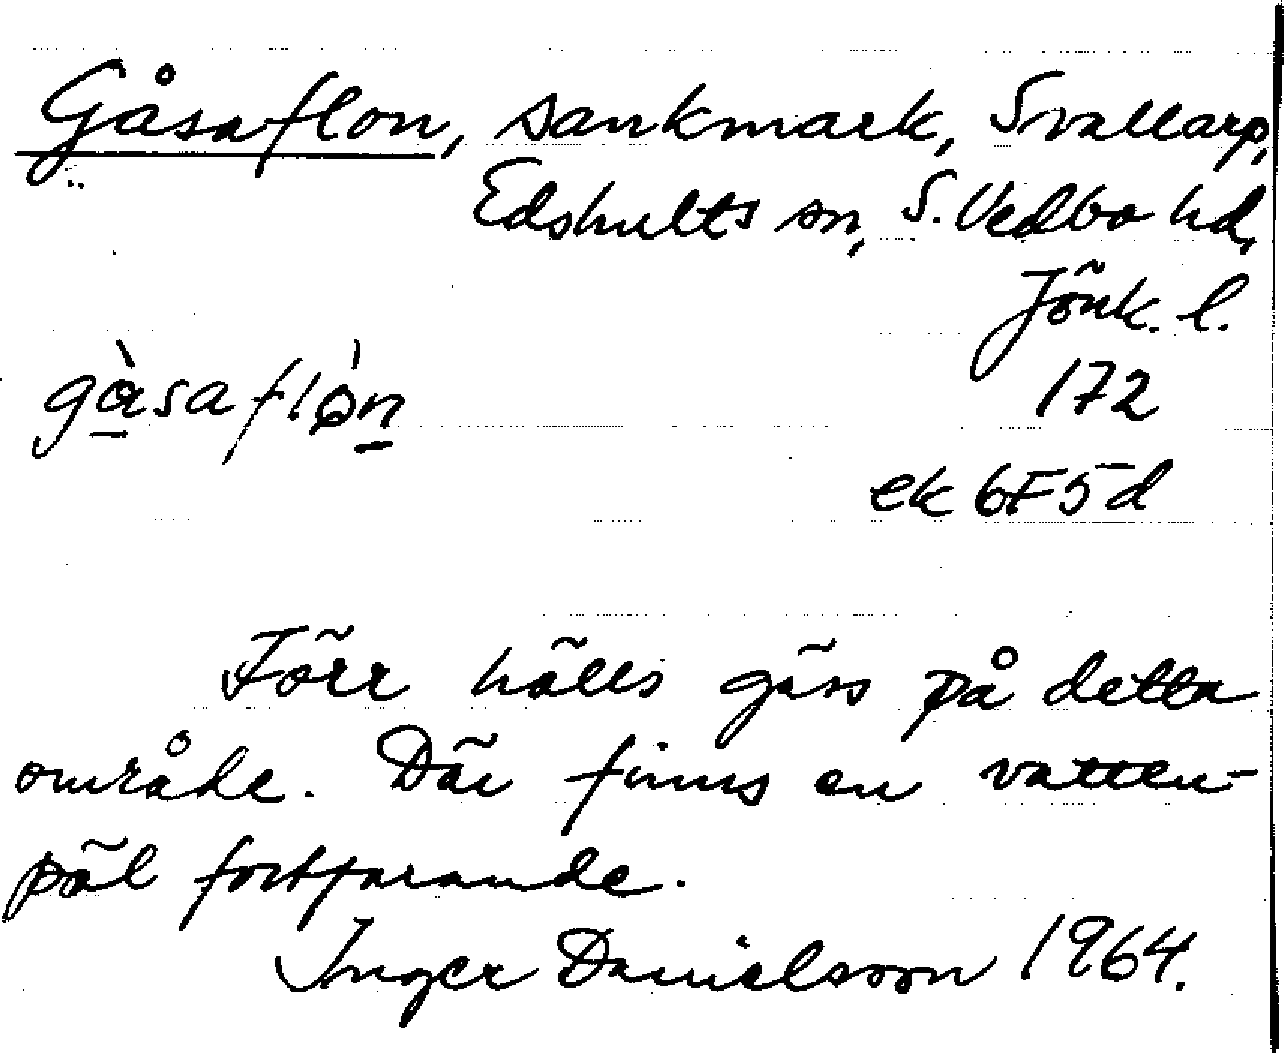 Gåsaflon, sankmark, Svallarp,
Edshults sn, S. Vedbo hd,
Jönk. l.
gàsaflòn 172
ek 6F5d
Förr hölls gäss på detta
område. Där finns en vatten-
pöl fortfarande.
Inger Danielsson 1964.